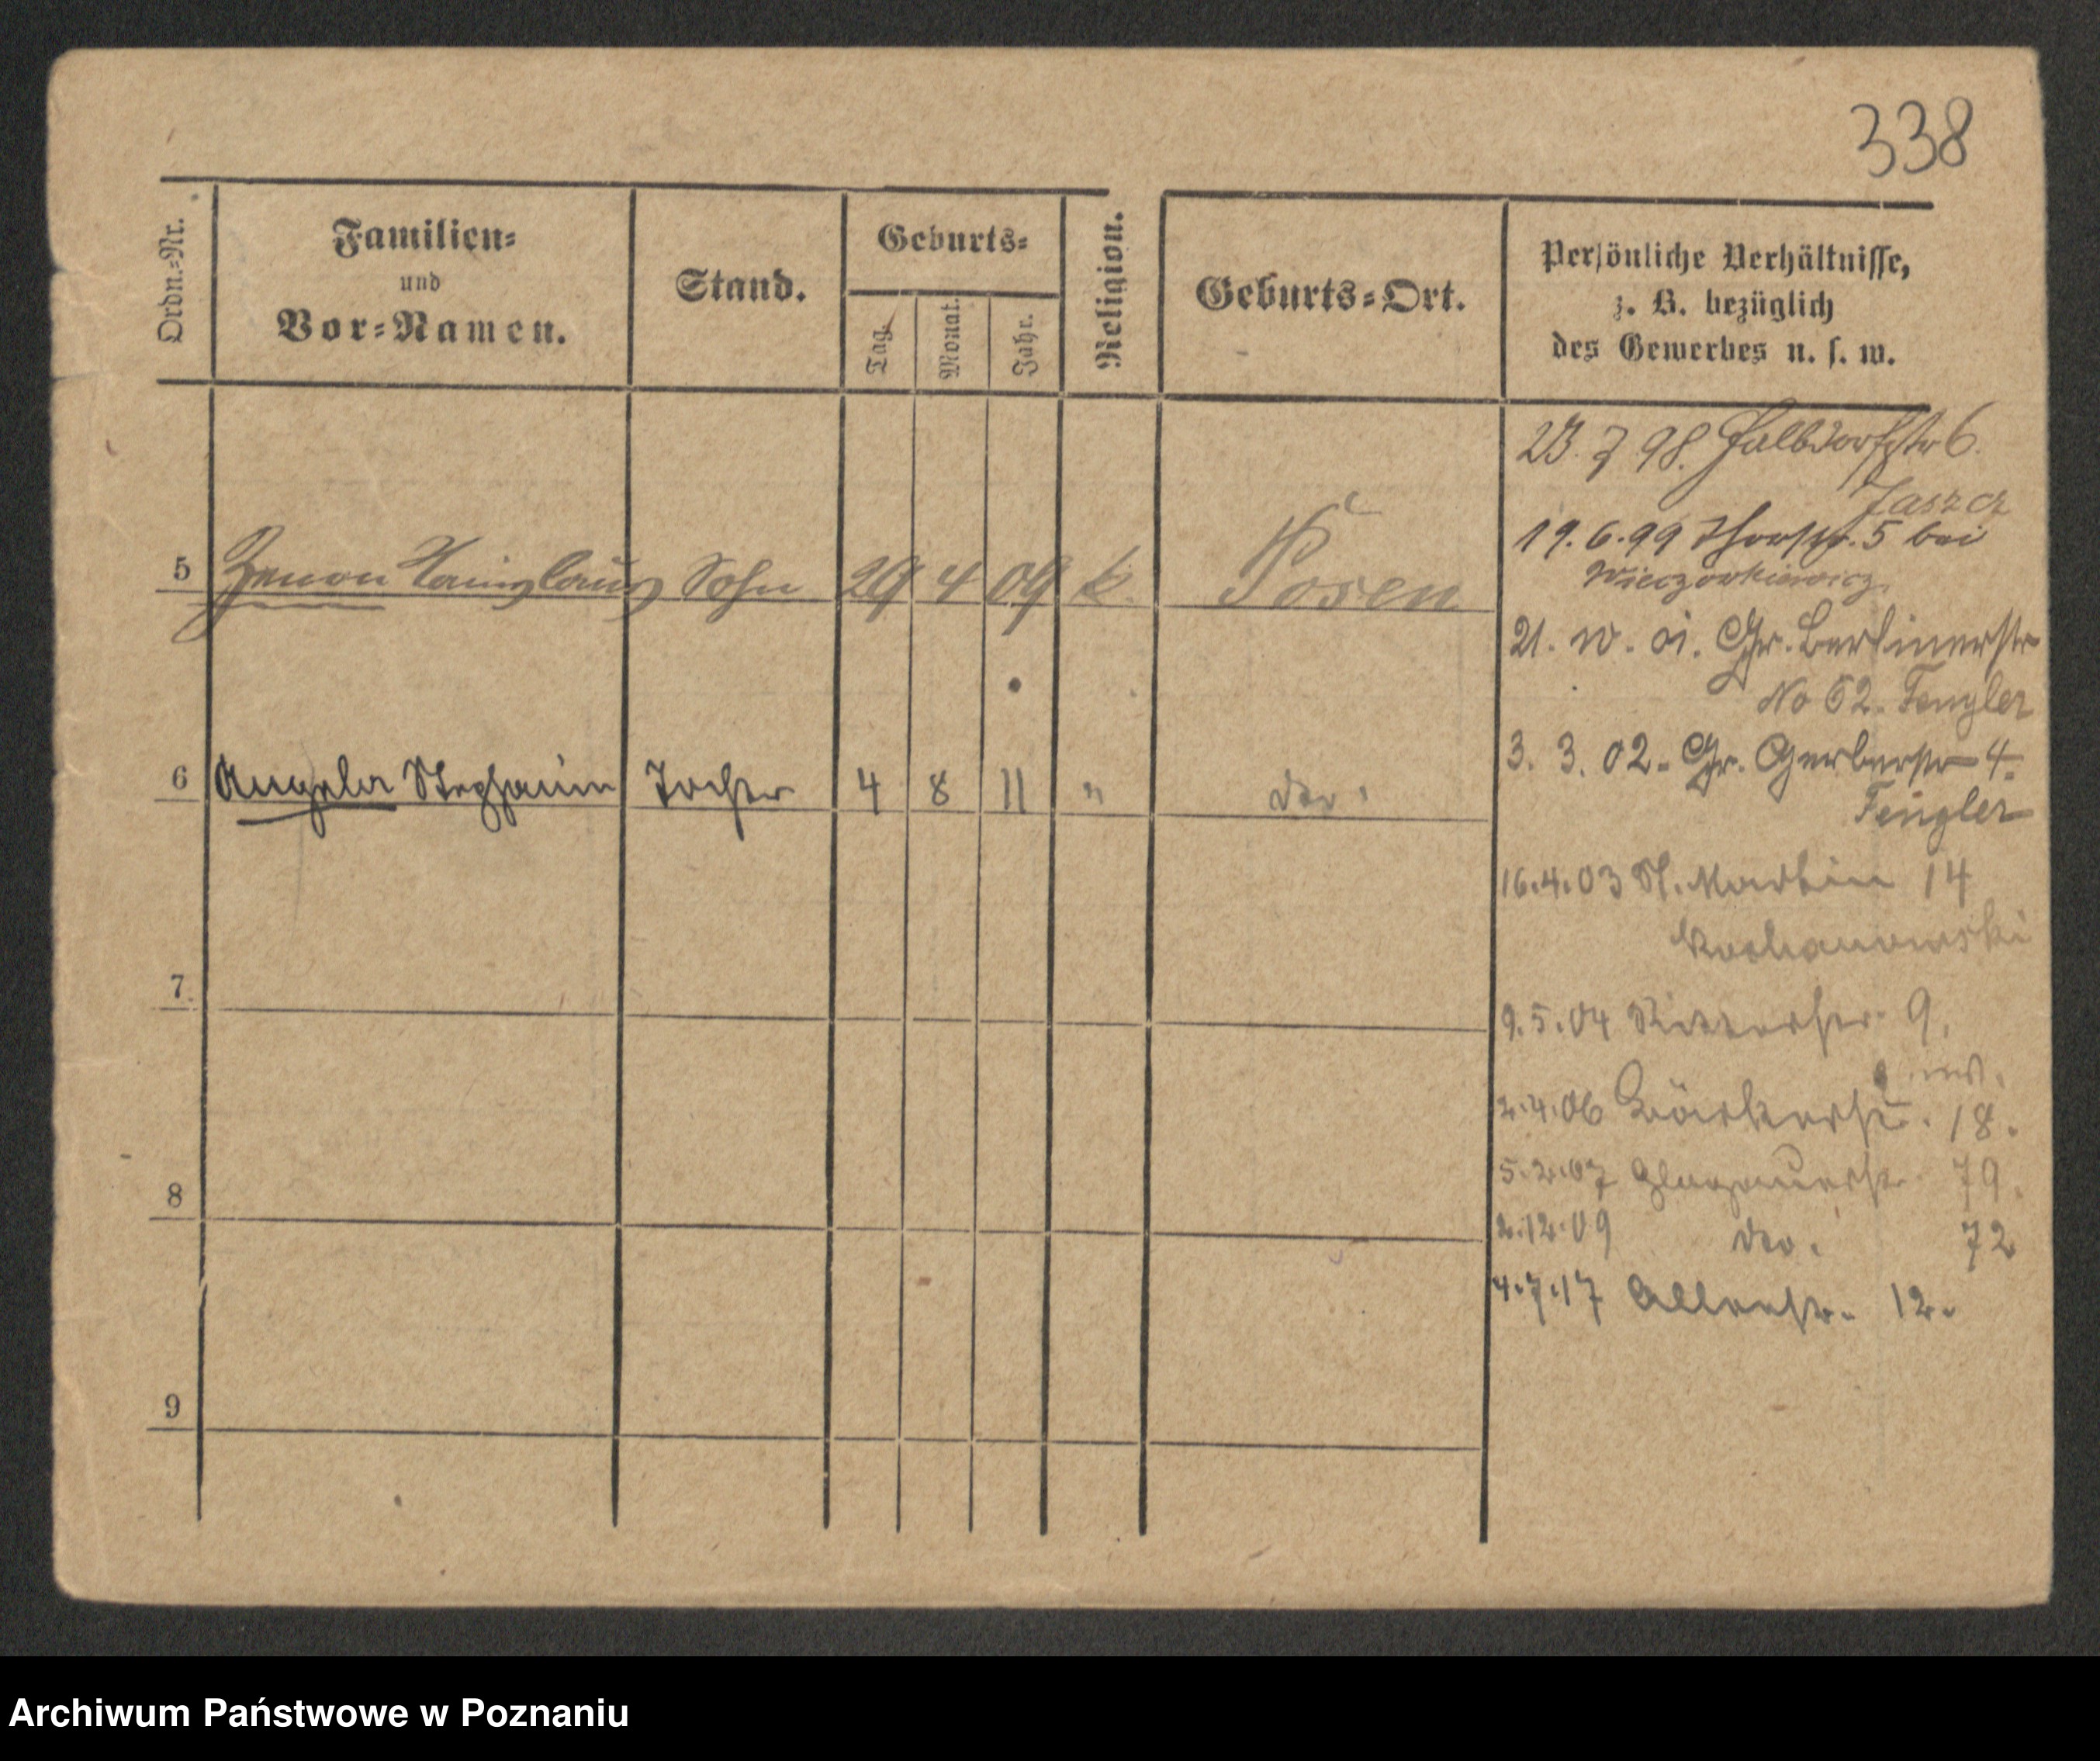 338
Ordn.=Nr.
Familien=
und
Vor=Namen.
Stand.
Geburts=
Tag.
Monat.
Jahr.
Religion.
Geburts=Ort.
Persönliche Verhältnisse,
z. B. bezüglich
des Gewerbes u. s. w.
5 Zenon Sohn 29 4 09 k. Posen
6 Angela Stephanie Tochter 4 8 11 " do.
7.
8
9
23. 7 98. Halbdorfstr 6.
19. 6. 99 5 bei
Wieczorkiewicz
21. 10. 01. Gr. Berlinerstr
No 52. Fengler
3. 3. 02. Gr. Gerberstr 4.
Fengler
16.4.03 St. Martin 14
Kochanowski
9.5.04 Ritterstr. 9.
2.4.06 Bäckerstr. 18.
5.2.07 Glogauerstr. 79.
2.12.09 do. 72
4.7.17 12.
Archiwum Państwowe w Poznaniu